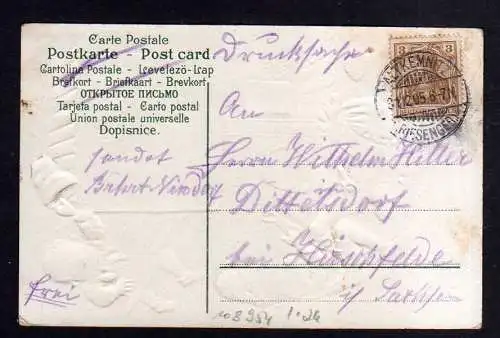 Carte Postale
Postkarte - Post card
Cartolina Postale - Levelező-Lap
Brefkort - Briefkaart - Brevkort
ОТКРЫТОЕ ПИСЬМО
Tarjeta postal - Carto postal
Union postale universelle
Dopisnice.
Drucksache
3 3
ALTKEMNITZ
(RIESENGEB.)
An
Herrn Wilhelm Hiller
Dittelsdorf
bei Hirschfelde
i/ Sachsen
sendet
frei
108254